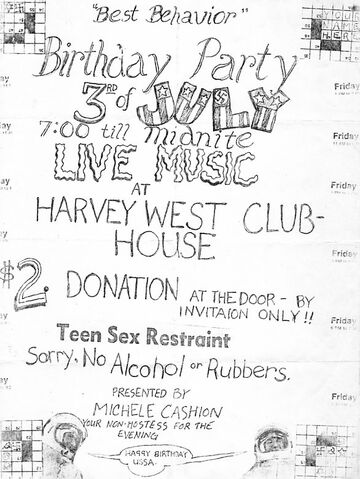 "Best Behavior"
Birthday Party
3RD of JULY
7:00 till midnite
LIVE MUSIC
AT
HARVEY WEST CLUB-
HOUSE
$2. DONATION AT THE DOOR - BY
INVITAION ONLY!!
Teen Sex Restraint
Sorry, No Alcohol or Rubbers.
PRESENTED BY
MICHELE CASHION
YOUR NON-HOSTESS FOR THE
EVENING
HAPPY BIRTHDAY
USSA.
YOUR
NAME
HERE
Friday
Friday
Friday
Friday
Friday
Friday